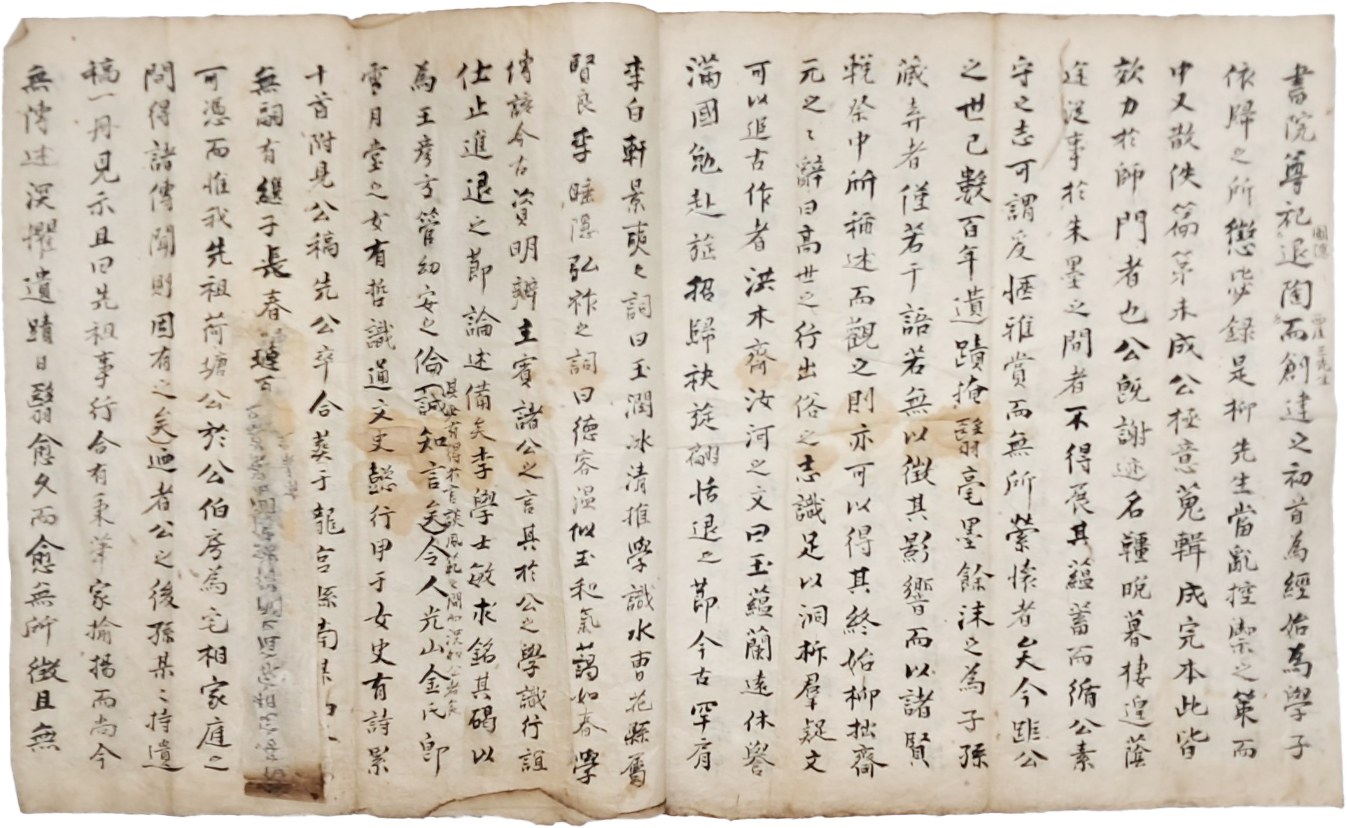 書院尊祀退陶而創建之初首為經始為學子
依歸之所懲毖錄是柳先生當亂控禦之策而
中又散佚篇第未成公極意蒐輯成完本此皆
效力於師門者也公旣謝迹名韁晩暮棲遑蔭
途從事於朱墨之間者不得展其蘊蓄而循公素
守之志可謂反惬雅賞而無所縈懷者矣今距公
之世已數百年遺蹟掩翳毫墨餘沫之為子孫
藏弆者僅若干語若無以徵其影響而以諸賢
輓祭中所稱述而觀之則亦可以得其終始柳拙齋
元之之辭曰高世之行出俗之志識足以洞析羣疑文
可以追古作者洪木齋汝河之文曰玉蘊蘭遠休譽
滿國勉赴旋招歸袂旋翩恬退之節今古罕有
李白軒景奭之詞曰玉潤氷清推學識水曹花縣屬
賢良李睡隱弘祚之詞曰德容溫似玉和氣藹如春學
傳該今古資明辨主賓諸公之言其於公之學識行誼
仕止進退之節論述備矣李學士敏求銘其碣以
為王彦方管幼安之倫誠知言矣令人光山金氏郎
雪月堂之女有哲識通文史懿行甲于女史有詩累
十首附見公稿先公卒合葬于龍宮縣南
無嗣有繼子長春
可憑而惟我先祖荷塘公於公伯房為宅相家庭之
問得諸傳聞則固有之矣迺者公之後孫某某持遺
稿一冊見示且曰先祖事行合有秉筆家揄揚而尚今
無傳述深懼遺蹟日翳愈久而愈無所徵且無